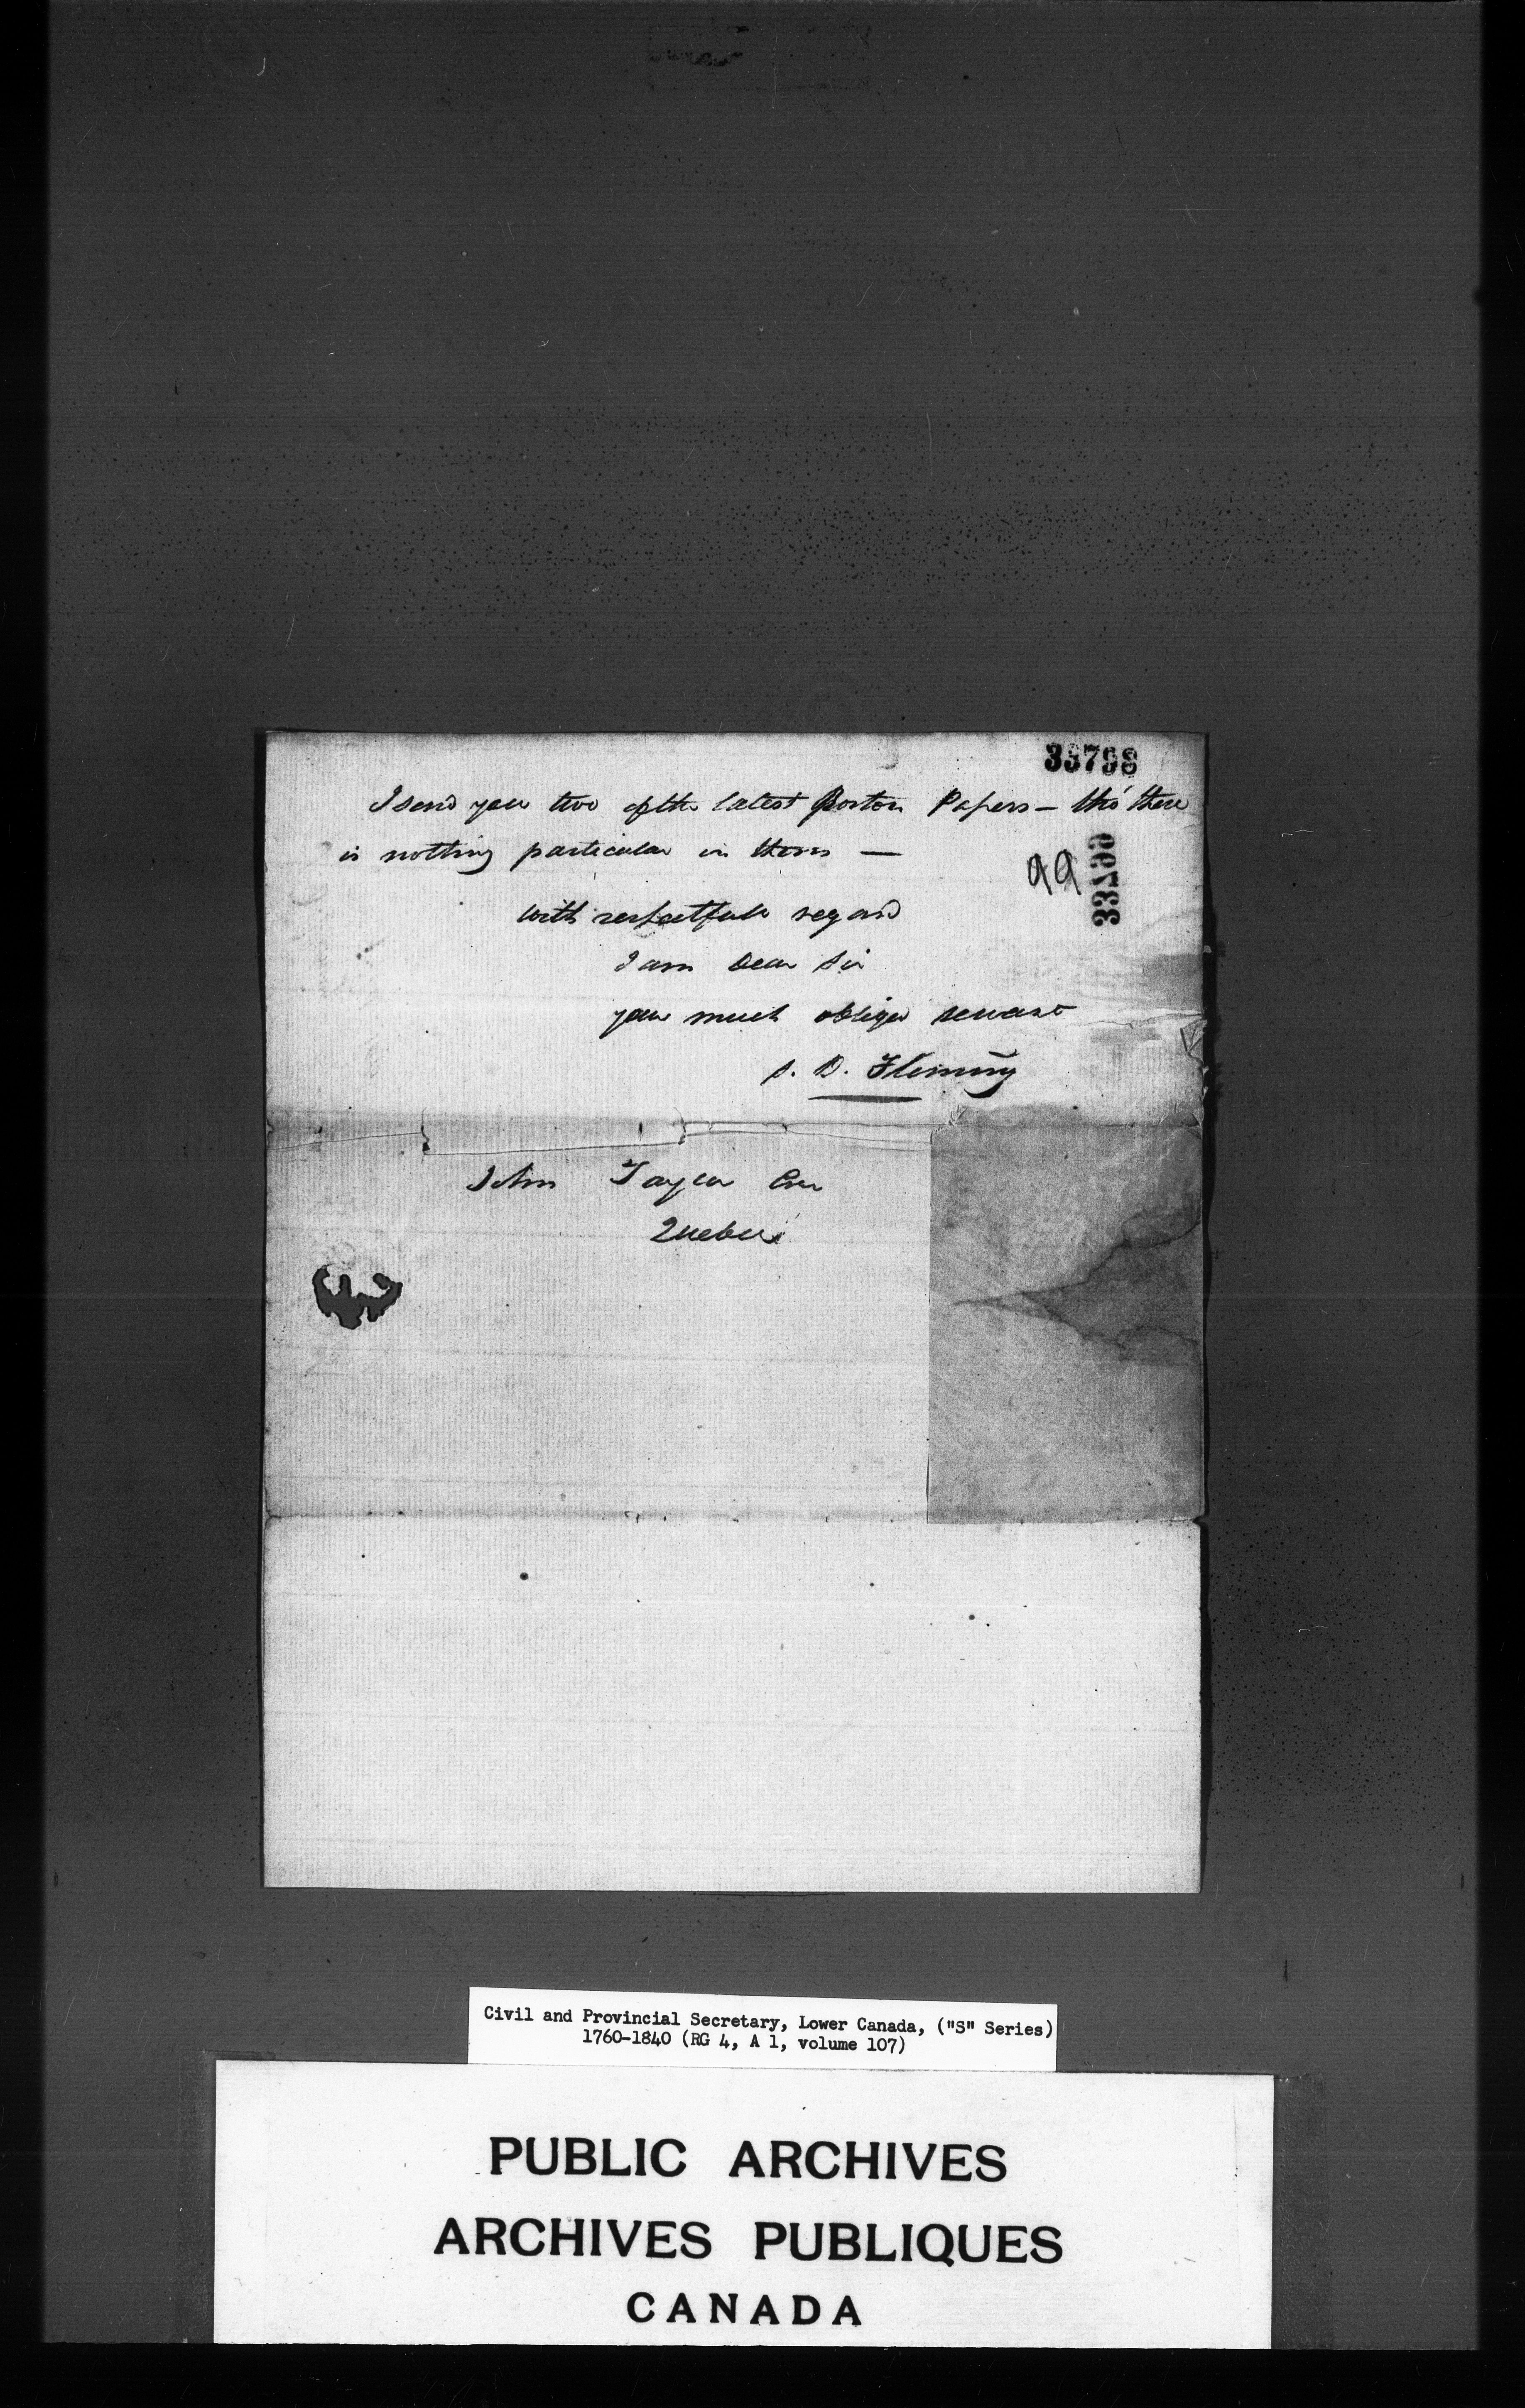 33798
I send you two of the latest Boston Papers — tho' there
is nothing particular in them —
99
33799
with respectful regard
I am Dear Sir
your much obliged servant
S. D. Fleming
John Taylor Esqr
Quebec
Civil and Provincial Secretary, Lower Canada, ("S" Series)
1760-1840 (RG 4, A 1, volume 107)
PUBLIC ARCHIVES
ARCHIVES PUBLIQUES
CANADA